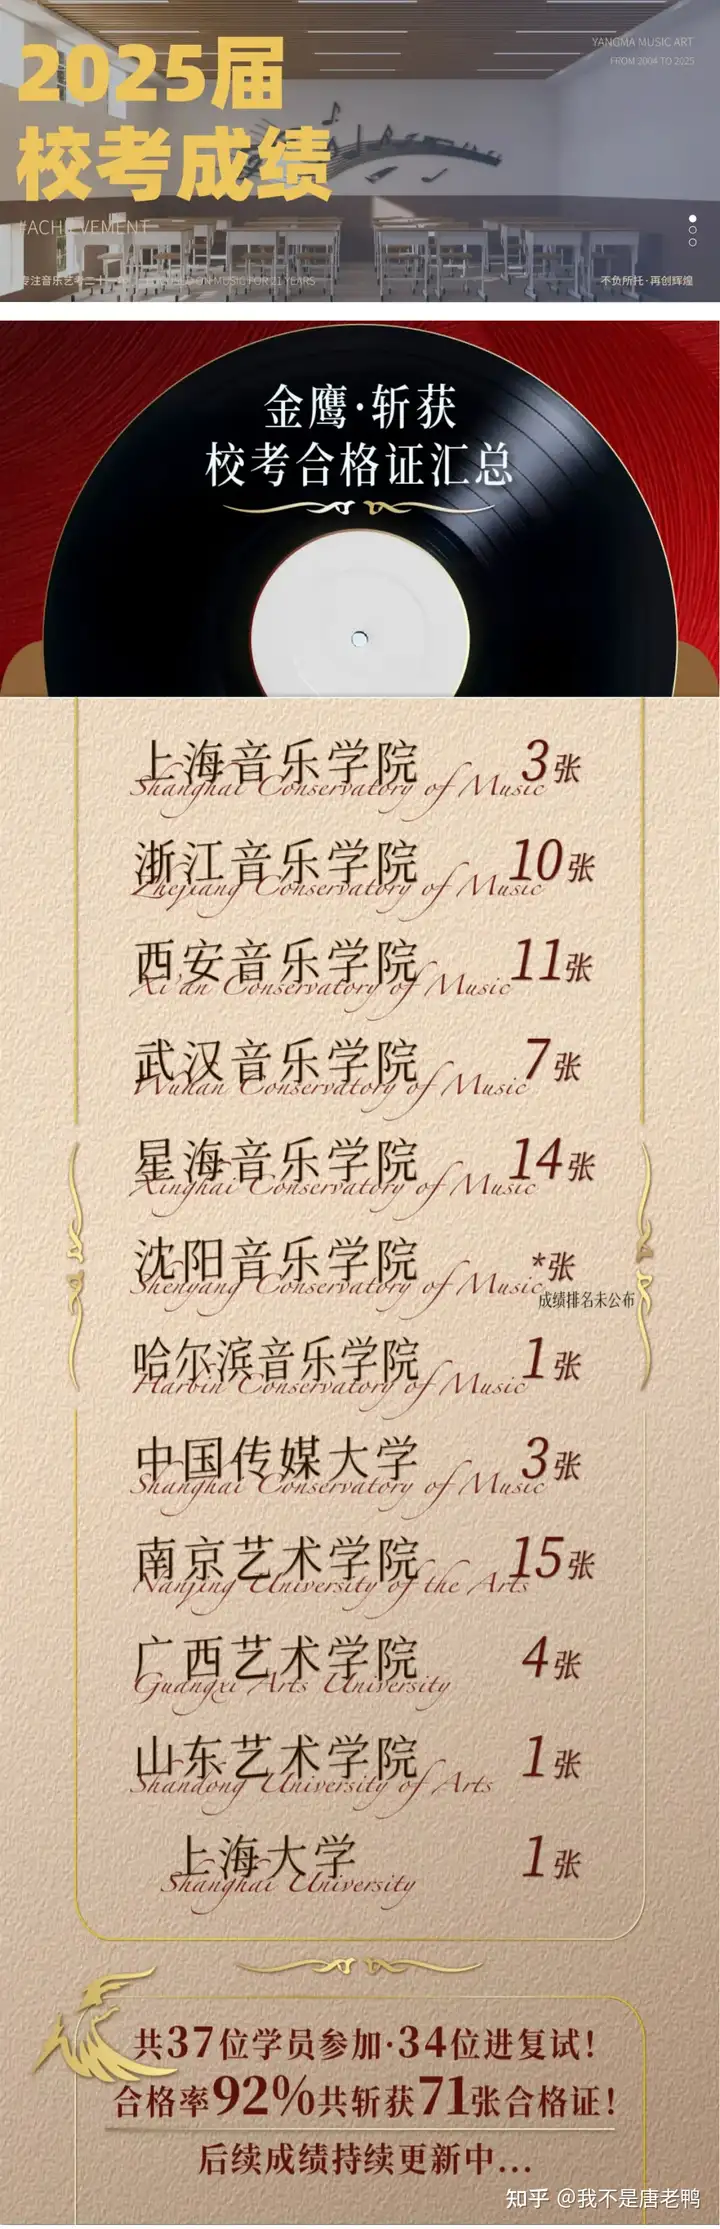 2025届
校考成绩
YANGMA MUSIC ART
FROM 2004 TO 2025
#ACHIEVEMENT
专注音乐艺考二十一年
ON MUSIC FOR 21 YEARS
不负所托·再创辉煌
金鹰·斩获
校考合格证汇总
上海音乐学院 3张
Shanghai Conservatory of Music
浙江音乐学院 10张
Zhejiang Conservatory of Music
西安音乐学院 11张
Xi'an Conservatory of Music
武汉音乐学院 7张
Wuhan Conservatory of Music
星海音乐学院 14张
Xinghai Conservatory of Music
沈阳音乐学院 *张
Shenyang Conservatory of Music
成绩排名未公布
哈尔滨音乐学院 1张
Harbin Conservatory of Music
中国传媒大学 3张
Shanghai Conservatory of Music
南京艺术学院 15张
Nanjing University of the Arts
广西艺术学院 4张
Guangxi Arts University
山东艺术学院 1张
Shandong University of Arts
上海大学 1张
Shanghai University
共37位学员参加·34位进复试!
合格率92%共斩获71张合格证!
后续成绩持续更新中...
知乎 @我不是唐老鸭